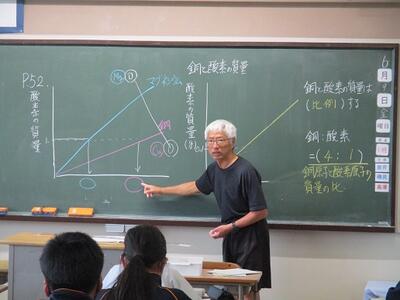 P.52.
酸素の質量
Mg
O
マグネシウム
銅
Cu
O
銅と酸素の質量
酸素の質量(g)
銅と酸素の質量は
(比例)する
銅:酸素
=(4:1)
銅原子と酸素原子の
質量の比
6
月
日
金
曜日